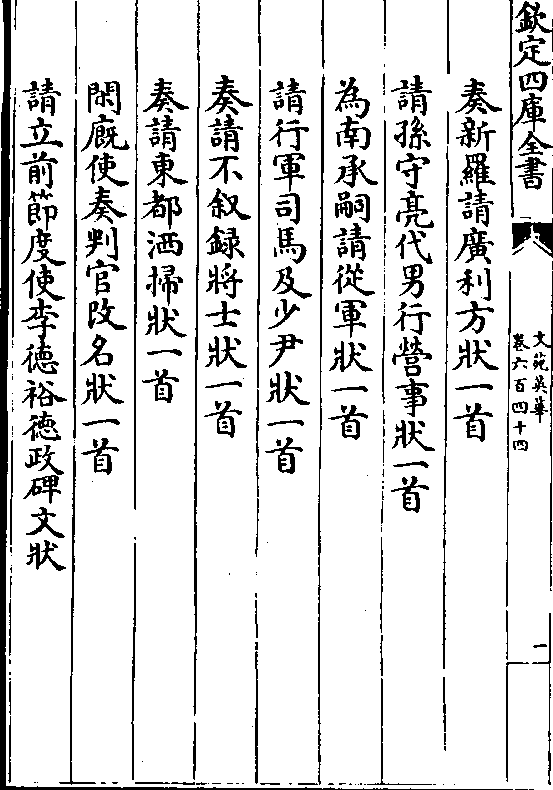 欽定四庫全書
文苑英華
卷六百四十四
一
奏新羅請廣利方狀一首
請孫守亮代男行營事狀一首
為南承嗣請從軍狀一首
請行軍司馬及少尹狀一首
奏請不叙録將士狀一首
奏請東都洒掃狀一首
閑廐使奏判官改名狀一首
請立前節度使李德裕德政碑文狀